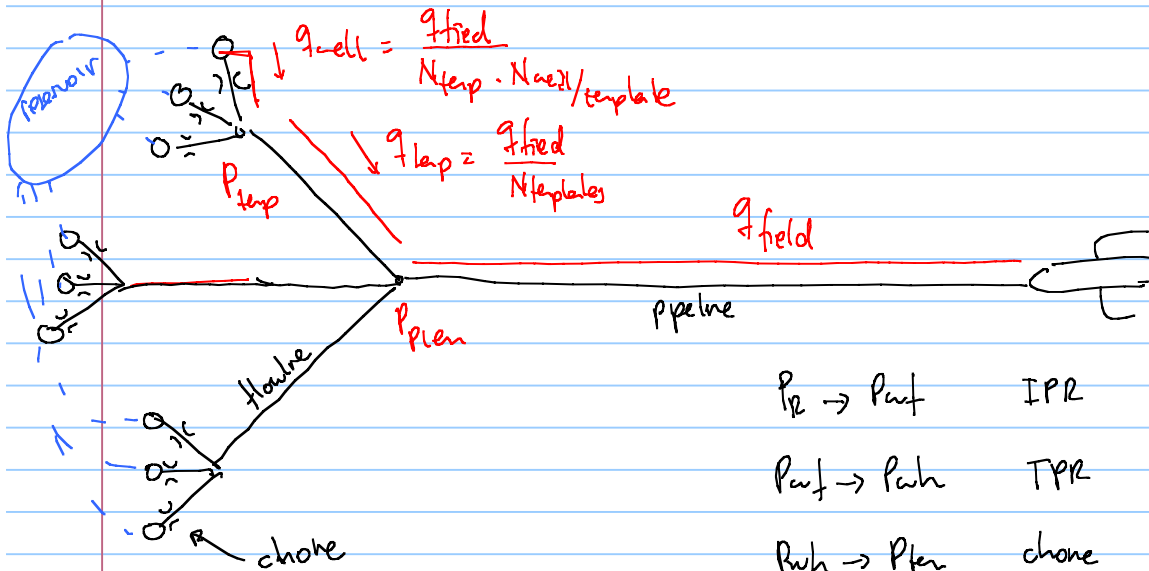 reservoir
q well = q field / N temp · N well/template
q temp = q field / N templates
P temp
q field
P plem
pipeline
flowline
choke
PR → Pwf IPR
Pwf → Pwh TPR
Pwh → Ptem choke